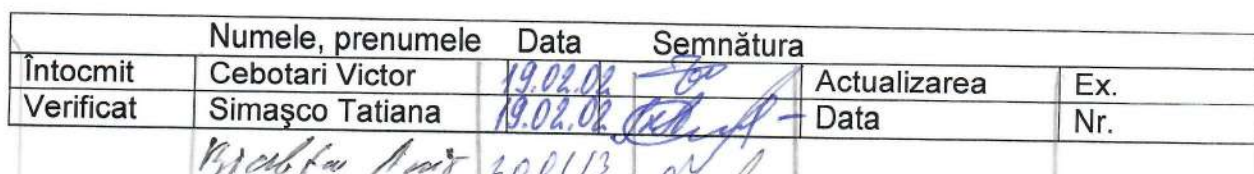 Numele, prenumele Data Semnătura
Întocmit Cebotari Victor 19.02.02 Actualizarea Ex.
Verificat Simaşco Tatiana 19.02.02 Data Nr.